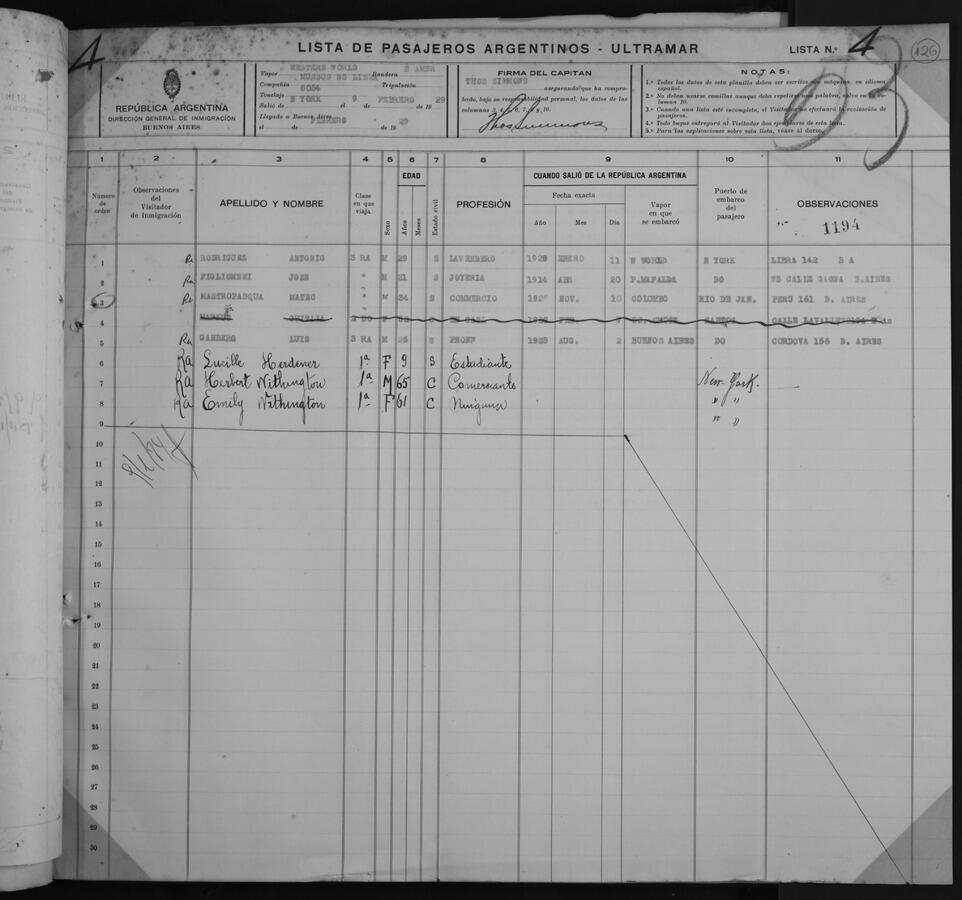 4
LISTA DE PASAJEROS ARGENTINOS - ULTRAMAR
LISTA N.º 4
126
REPÚBLICA ARGENTINA
DIRECCIÓN GENERAL DE INMIGRACIÓN
BUENOS AIRES
Vapor WESTERN WORLD Bandera
Compañía MUNSON SS LINE Tripulación
Tonelaje 8054
Salió de N YORK el 9 de FEBRERO de 19 29
Llegado a Buenos Aires
el de FEBRERO de 19 29
FIRMA DEL CAPITAN
THOS SIMMONS
asegurando que ha compro-
bado, bajo su responsabilidad personal, los datos de las
columnas 2, 4, 5, 6, 7, 8, 9, 10.
Thos Simmons
NOTAS:
1.ª Todos los datos de esta planilla deben ser escritos con máquina, en idioma español.
2.ª No deben usarse comillas aunque deba repetirse una palabra, salvo en la columna 10.
3.ª Cuando una lista esté incompleta, el Visitador no efectuará la revisación de pasajeros.
4.ª Todo buque entregará al Visitador dos ejemplares de esta lista.
5.ª Para las explicaciones sobre esta lista, véase al dorso.
1 2 3 4 5 6 7 8 9 10 11
Número de orden
Observaciones del Visitador de Inmigración
APELLIDO Y NOMBRE
Clase en que viaja
Sexo
EDAD
Años
Meses
Estado civil
PROFESIÓN
CUANDO SALIÓ DE LA REPÚBLICA ARGENTINA
Fecha exacta
Año Mes Día
Vapor en que se embarcó
Puerto de embarco del pasajero
OBSERVACIONES
1194
1 Ra RODRIGUES ANTONIO 3 RA M 29 S LAVENDERO 1928 ENERO 11 W WORLD N YORK LIBRA 142 B A
2 Ra FIGLIOMENI JOSE " M 21 S JOYERIA 1914 ABR 20 P.MAFALDA DO 75 CALLE GAONA B.AIRES
3 Ra MASTROPASQUA MATEO " M 34 S COMMERCIO NOV. 10 COLUMBO RIO DE JAN. PERU 161 B. AIRES
4 SANTOS
5 Ra GANBERG LUIS 3 RA M 25 S PEONF 1928 AUG. 2 BUENOS AIRES DO CORDOVA 156 B. AIRES
6 Ra Lucille Herdener 1ª F 9 S Estudiante
7 Ra Herbert Withington 1ª M 65 C Comerciante New-York. —
8 Ra Emily Withington 1ª F 61 C Ninguna " "
9 " "
10
11
12
13
14
15
16
17
18
19
20
21
22
23
24
25
26
27
28
29
30